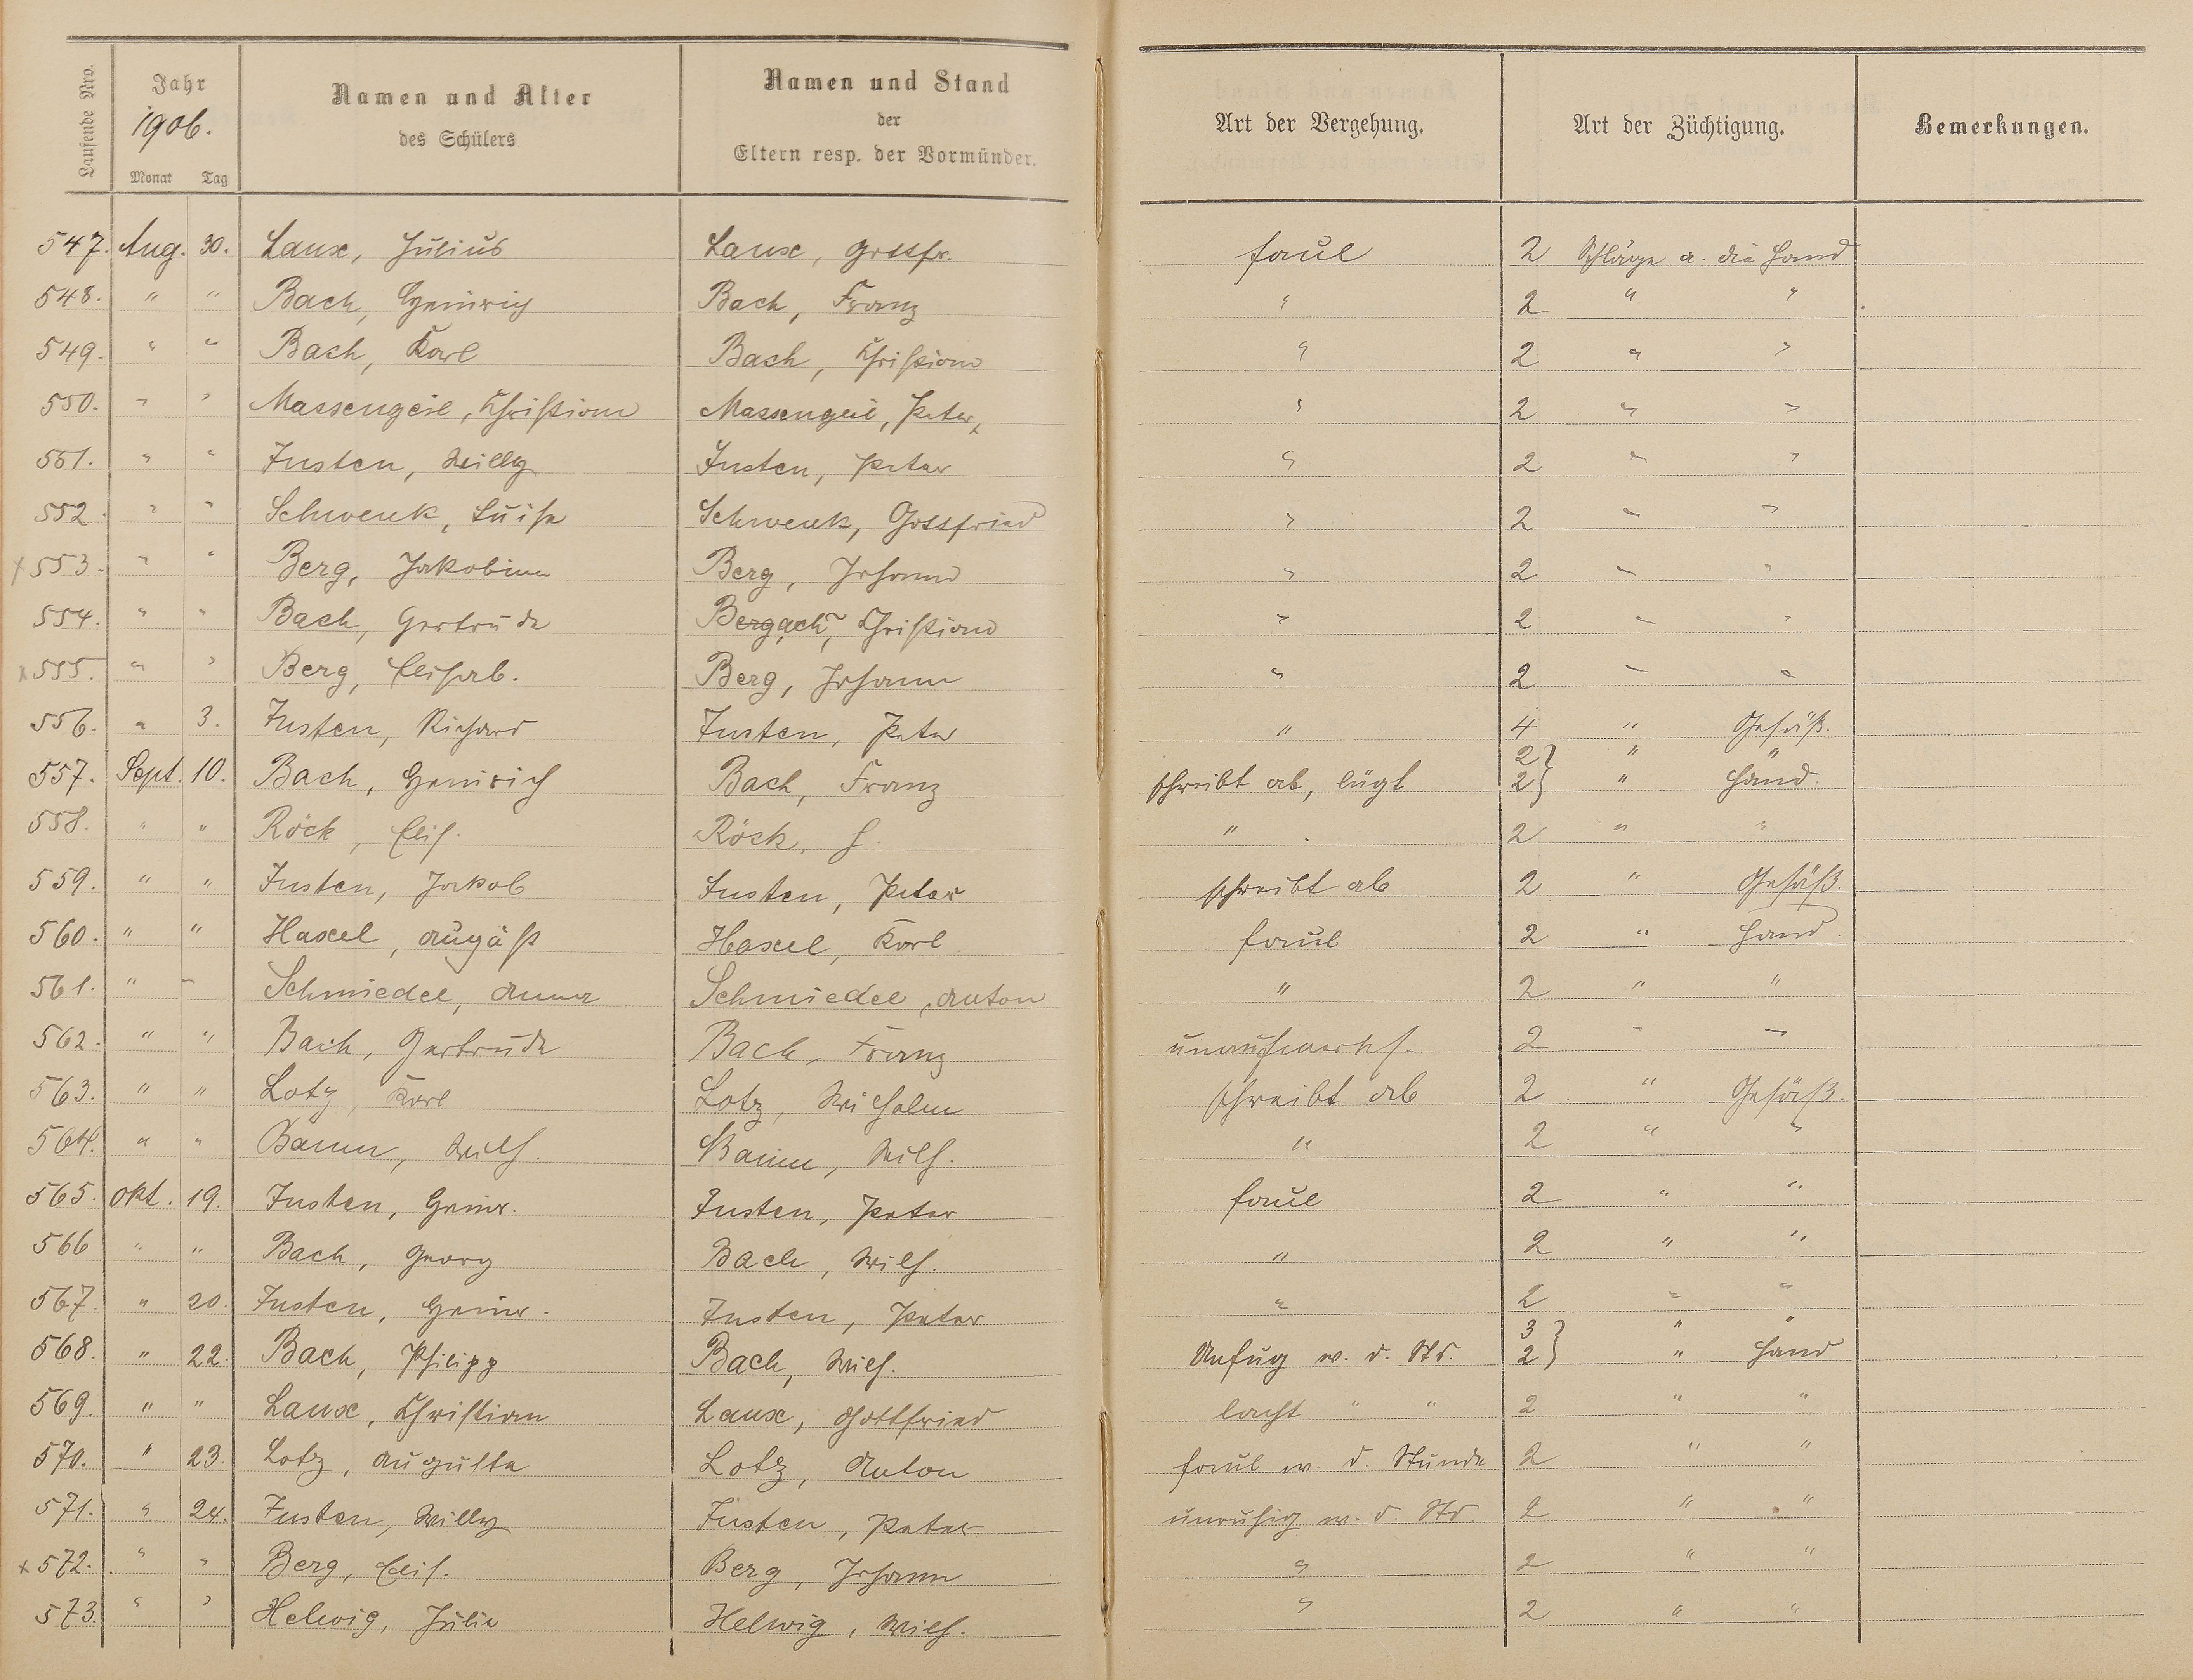 Laufende Nro.
Jahr
1906.
Monat Tag
Namen und Alter
des Schülers
Namen und Stand
der
Eltern resp. der Vormünder.
Art der Vergehung.
Art der Züchtigung.
Bemerkungen.
547. Aug. 30. Laux, Julius Laux, Gottfr. faul 2 Schläge a. die Hand
548. " " Bach, Heinrich Bach, Franz " 2 " "
549. " " Bach, Karl Bach, Christian " 2 " "
550. " " Massengeil, Christian Massengeil, Peter, " 2 " "
551. " " Justen, Willy Justen, Peter " 2 " "
552. " " Schwenk, Luise Schwenk, Gottfried " 2 " "
x 553. " " Berg, Jakobine Berg, Johann " 2 " "
554. " " Bach, Gertrude Bergach, Christian " 2 " "
x 555. " " Berg, Elisab. Berg, Johann " 2 " "
556. " 3. Justen, Richard Justen, Peter " 4 " Gesäß.
557. Sept. 10. Bach, Heinrich Bach, Franz schreibt ab, lügt 2 } " "
2 } " Hand.
558. " " Röck, Elis. Röck, H. " 2 " "
559. " " Justen, Jakob Justen, Peter schreibt ab 2 " Gesäß.
560. " " Haxel, August Haxel, Karl faul 2 " Hand.
561. " " Schmiedel, Anna Schmiedel, Anton " 2 " "
562. " " Bach, Gertrude Bach, Franz unaufmerks. 2 " "
563. " " Lotz, Karl Lotz, Wilhelm schreibt ab 2 " Gesäß.
564. " " Baum, Wilh. Baum, Wilh. " 2 " "
565. Okt. 19. Justen, Heinr. Justen, Peter faul 2 " "
566 " " Bach, Georg Bach, Wilh. " 2 " "
567. " 20. Justen, Heinr. Justen, Peter " 2 " "
568. " 22. Bach, Philipp Bach, Wilh. Unfug w. d. Std. 3 } " "
2 } " Hand
569. " " Laux, Christian Laux, Gottfried lacht " " 2 " "
570. " 23. Lotz, Auguste Lotz, Anton faul w. d. Stunde 2 " "
571. " 24. Justen, Willy Justen, Peter unruhig w. d. Std. 2 " "
x 572. " " Berg, Elis. Berg, Johann " 2 " "
573. " " Helwig, Julie Helwig, Wilh. " 2 " "